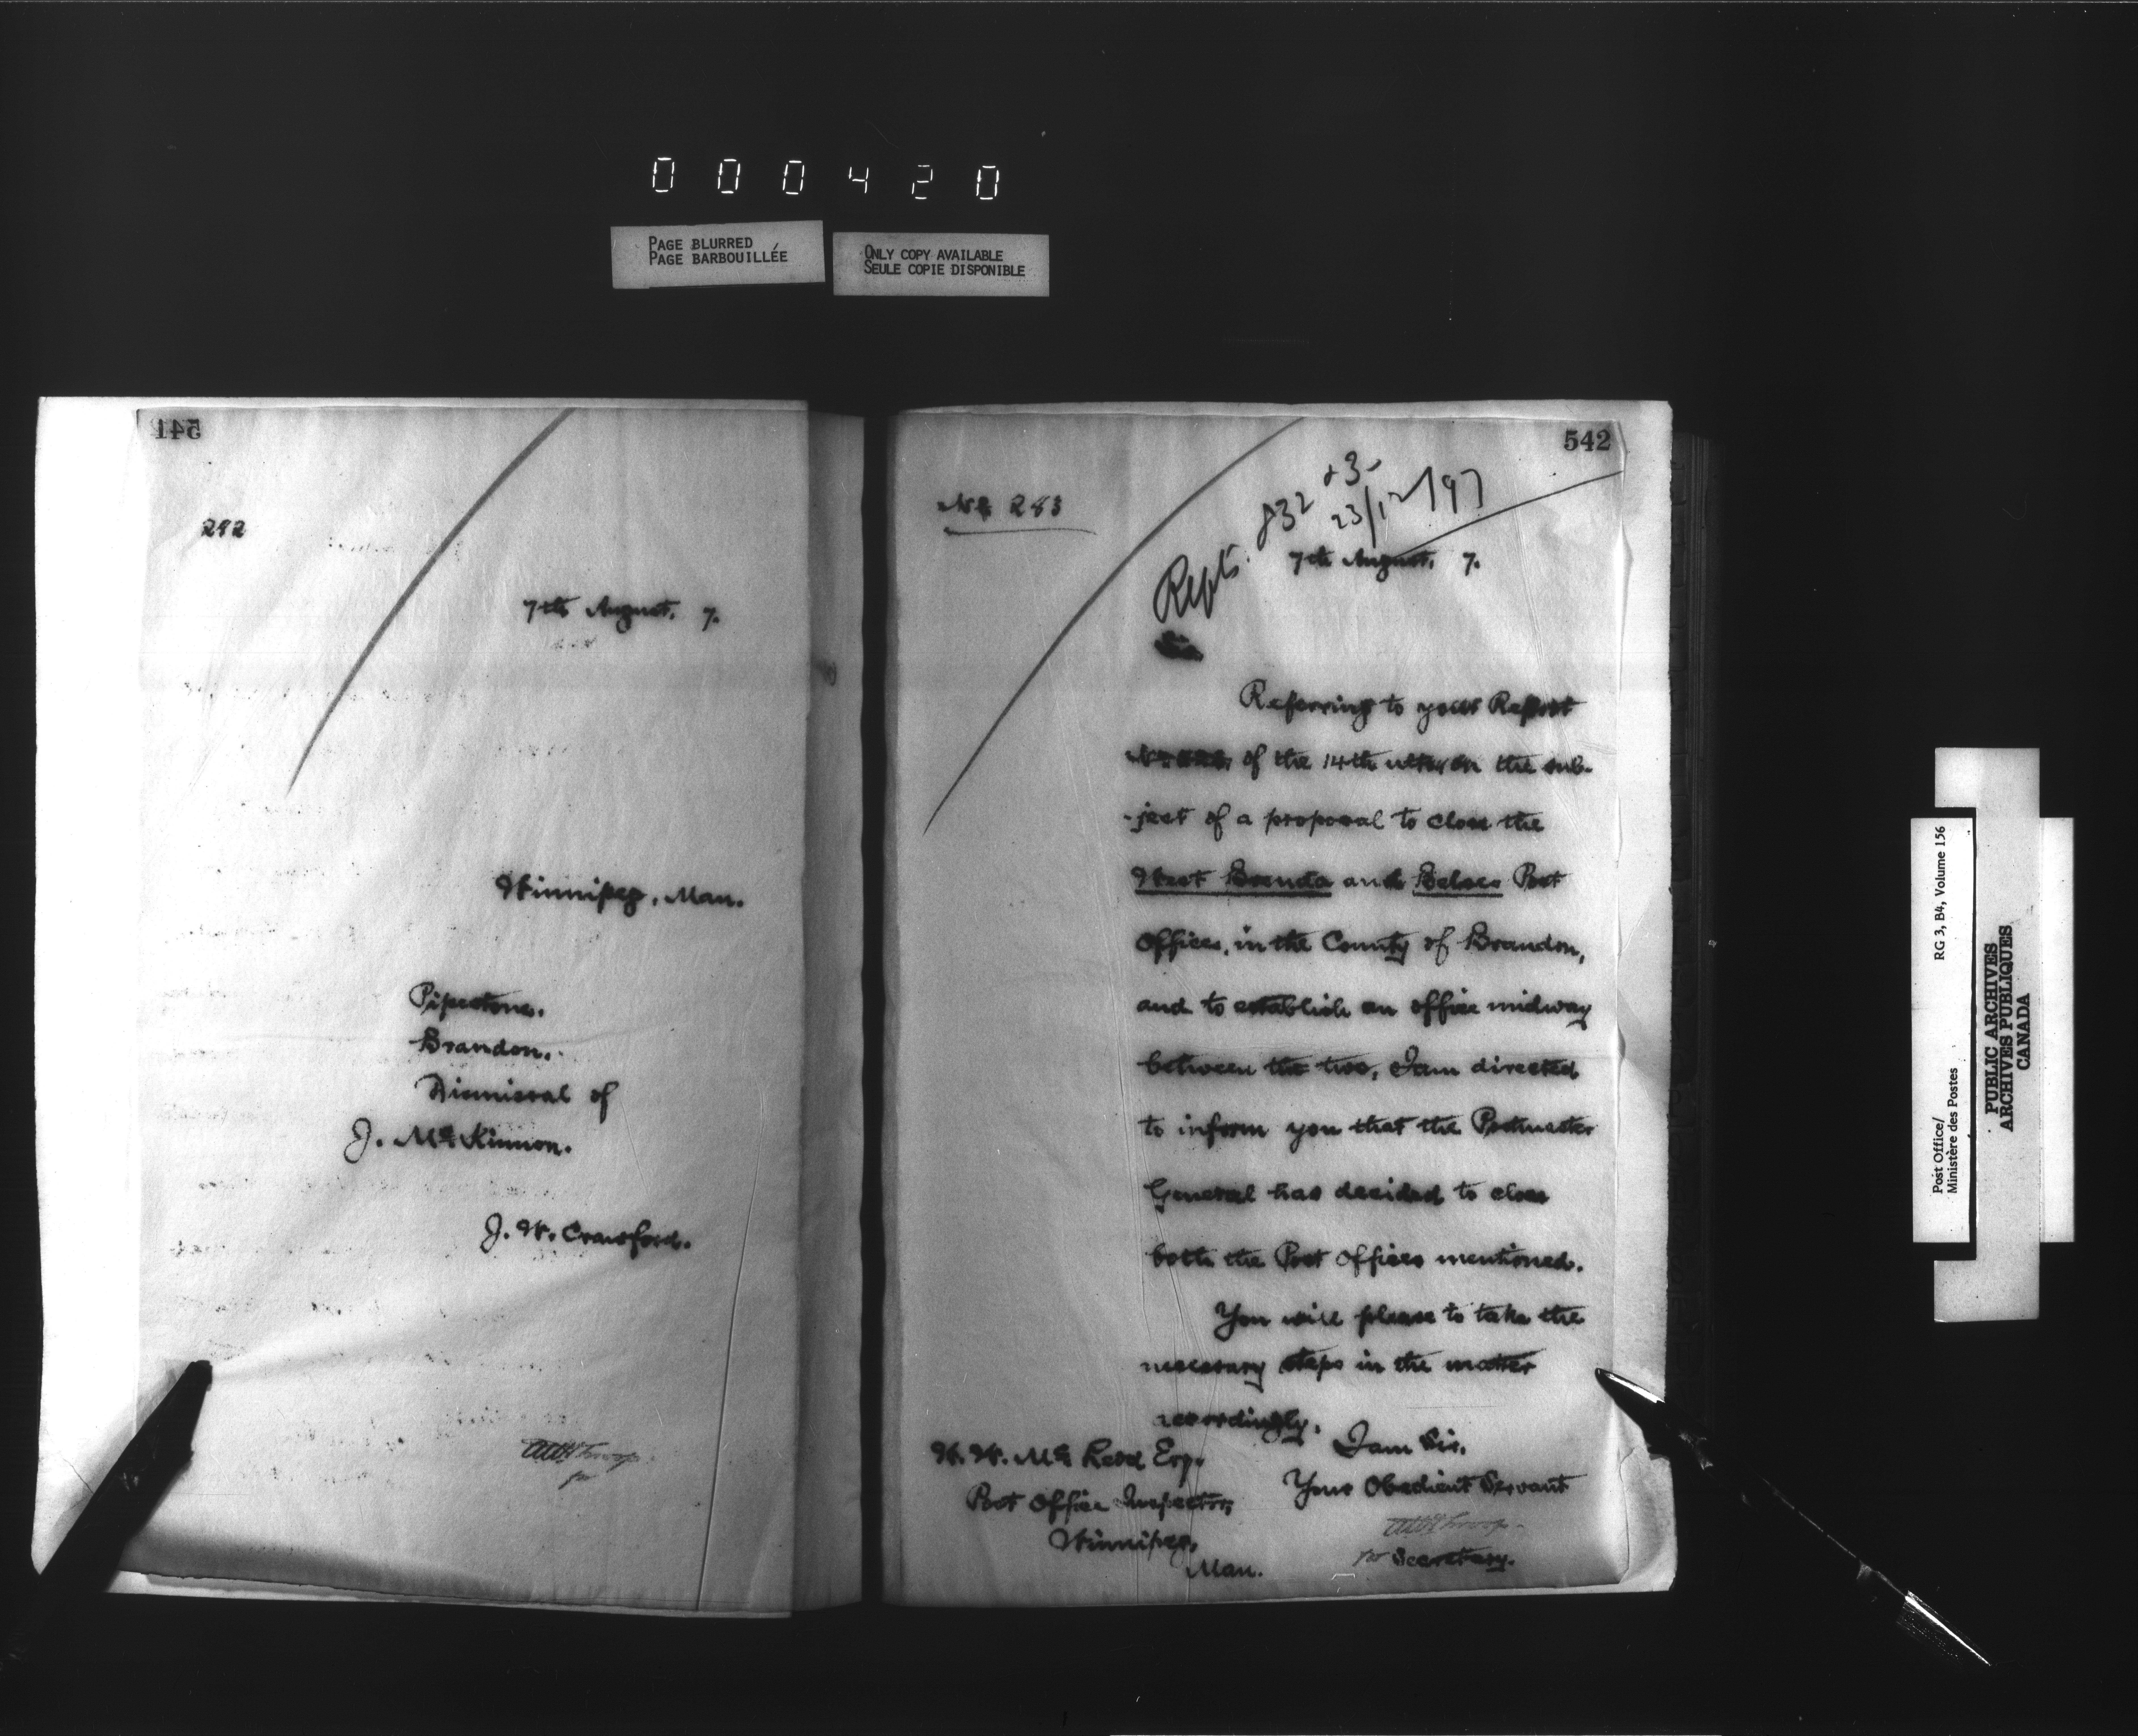 000420
PAGE BLURRED
PAGE BARBOUILLÉE
ONLY COPY AVAILABLE
SEULE COPIE DISPONIBLE
541
282
7th August. 7.
Winnipeg, Man.
Pipestone.
Brandon.
Dismissal of
J. Mc Kinnon.
J. W. Crawford.
542
No 283
Repts. 832 & 3-
23/12/97
7th August. 7.
Sir
Referring to your Report
of the 14th ulto, on the sub-
-ject of a proposal to close the
West Brenda and Belses Post
Offices, in the County of Brandon,
and to establish an office midway
between the two, I am directed
to inform you that the Postmaster
General has decided to close
both the Post Offices mentioned.
You will please to take the
necessary steps in the matter
accordingly.
I am Sir,
Your Obedient Servant
for Secretary.
W. W. Mc Leod Esq.
Post Office Inspector,
Winnipeg,
Man.
Post Office/
Ministère des Postes
RG 3, B4, Volume 156
PUBLIC ARCHIVES
ARCHIVES PUBLIQUES
CANADA